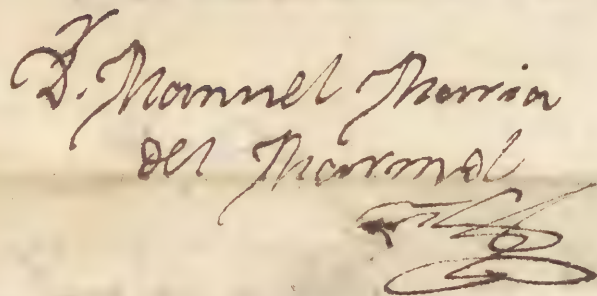 D. Manuel Maria
del Marmol